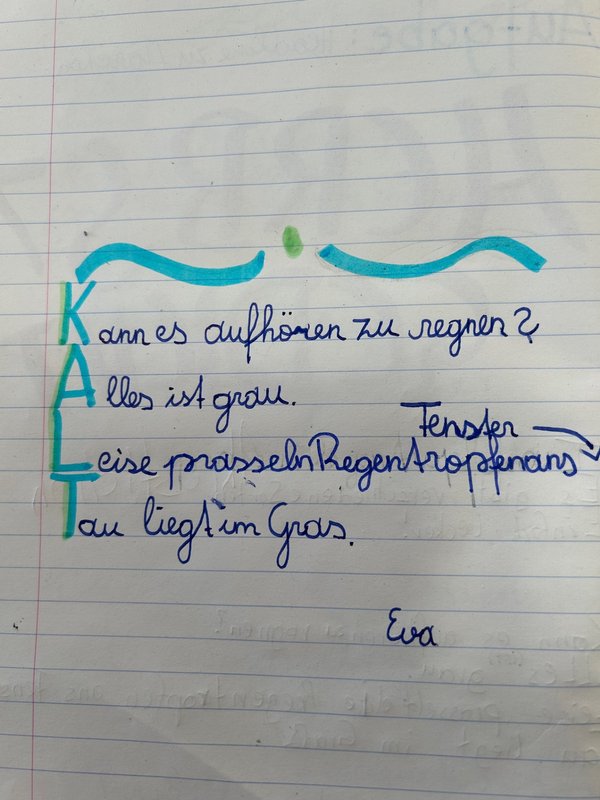 Kann es aufhören zu regnen?
Alles ist grau.
Leise prasseln Regentropfen ans
Fenster
Tau liegt im Gras.
Eva